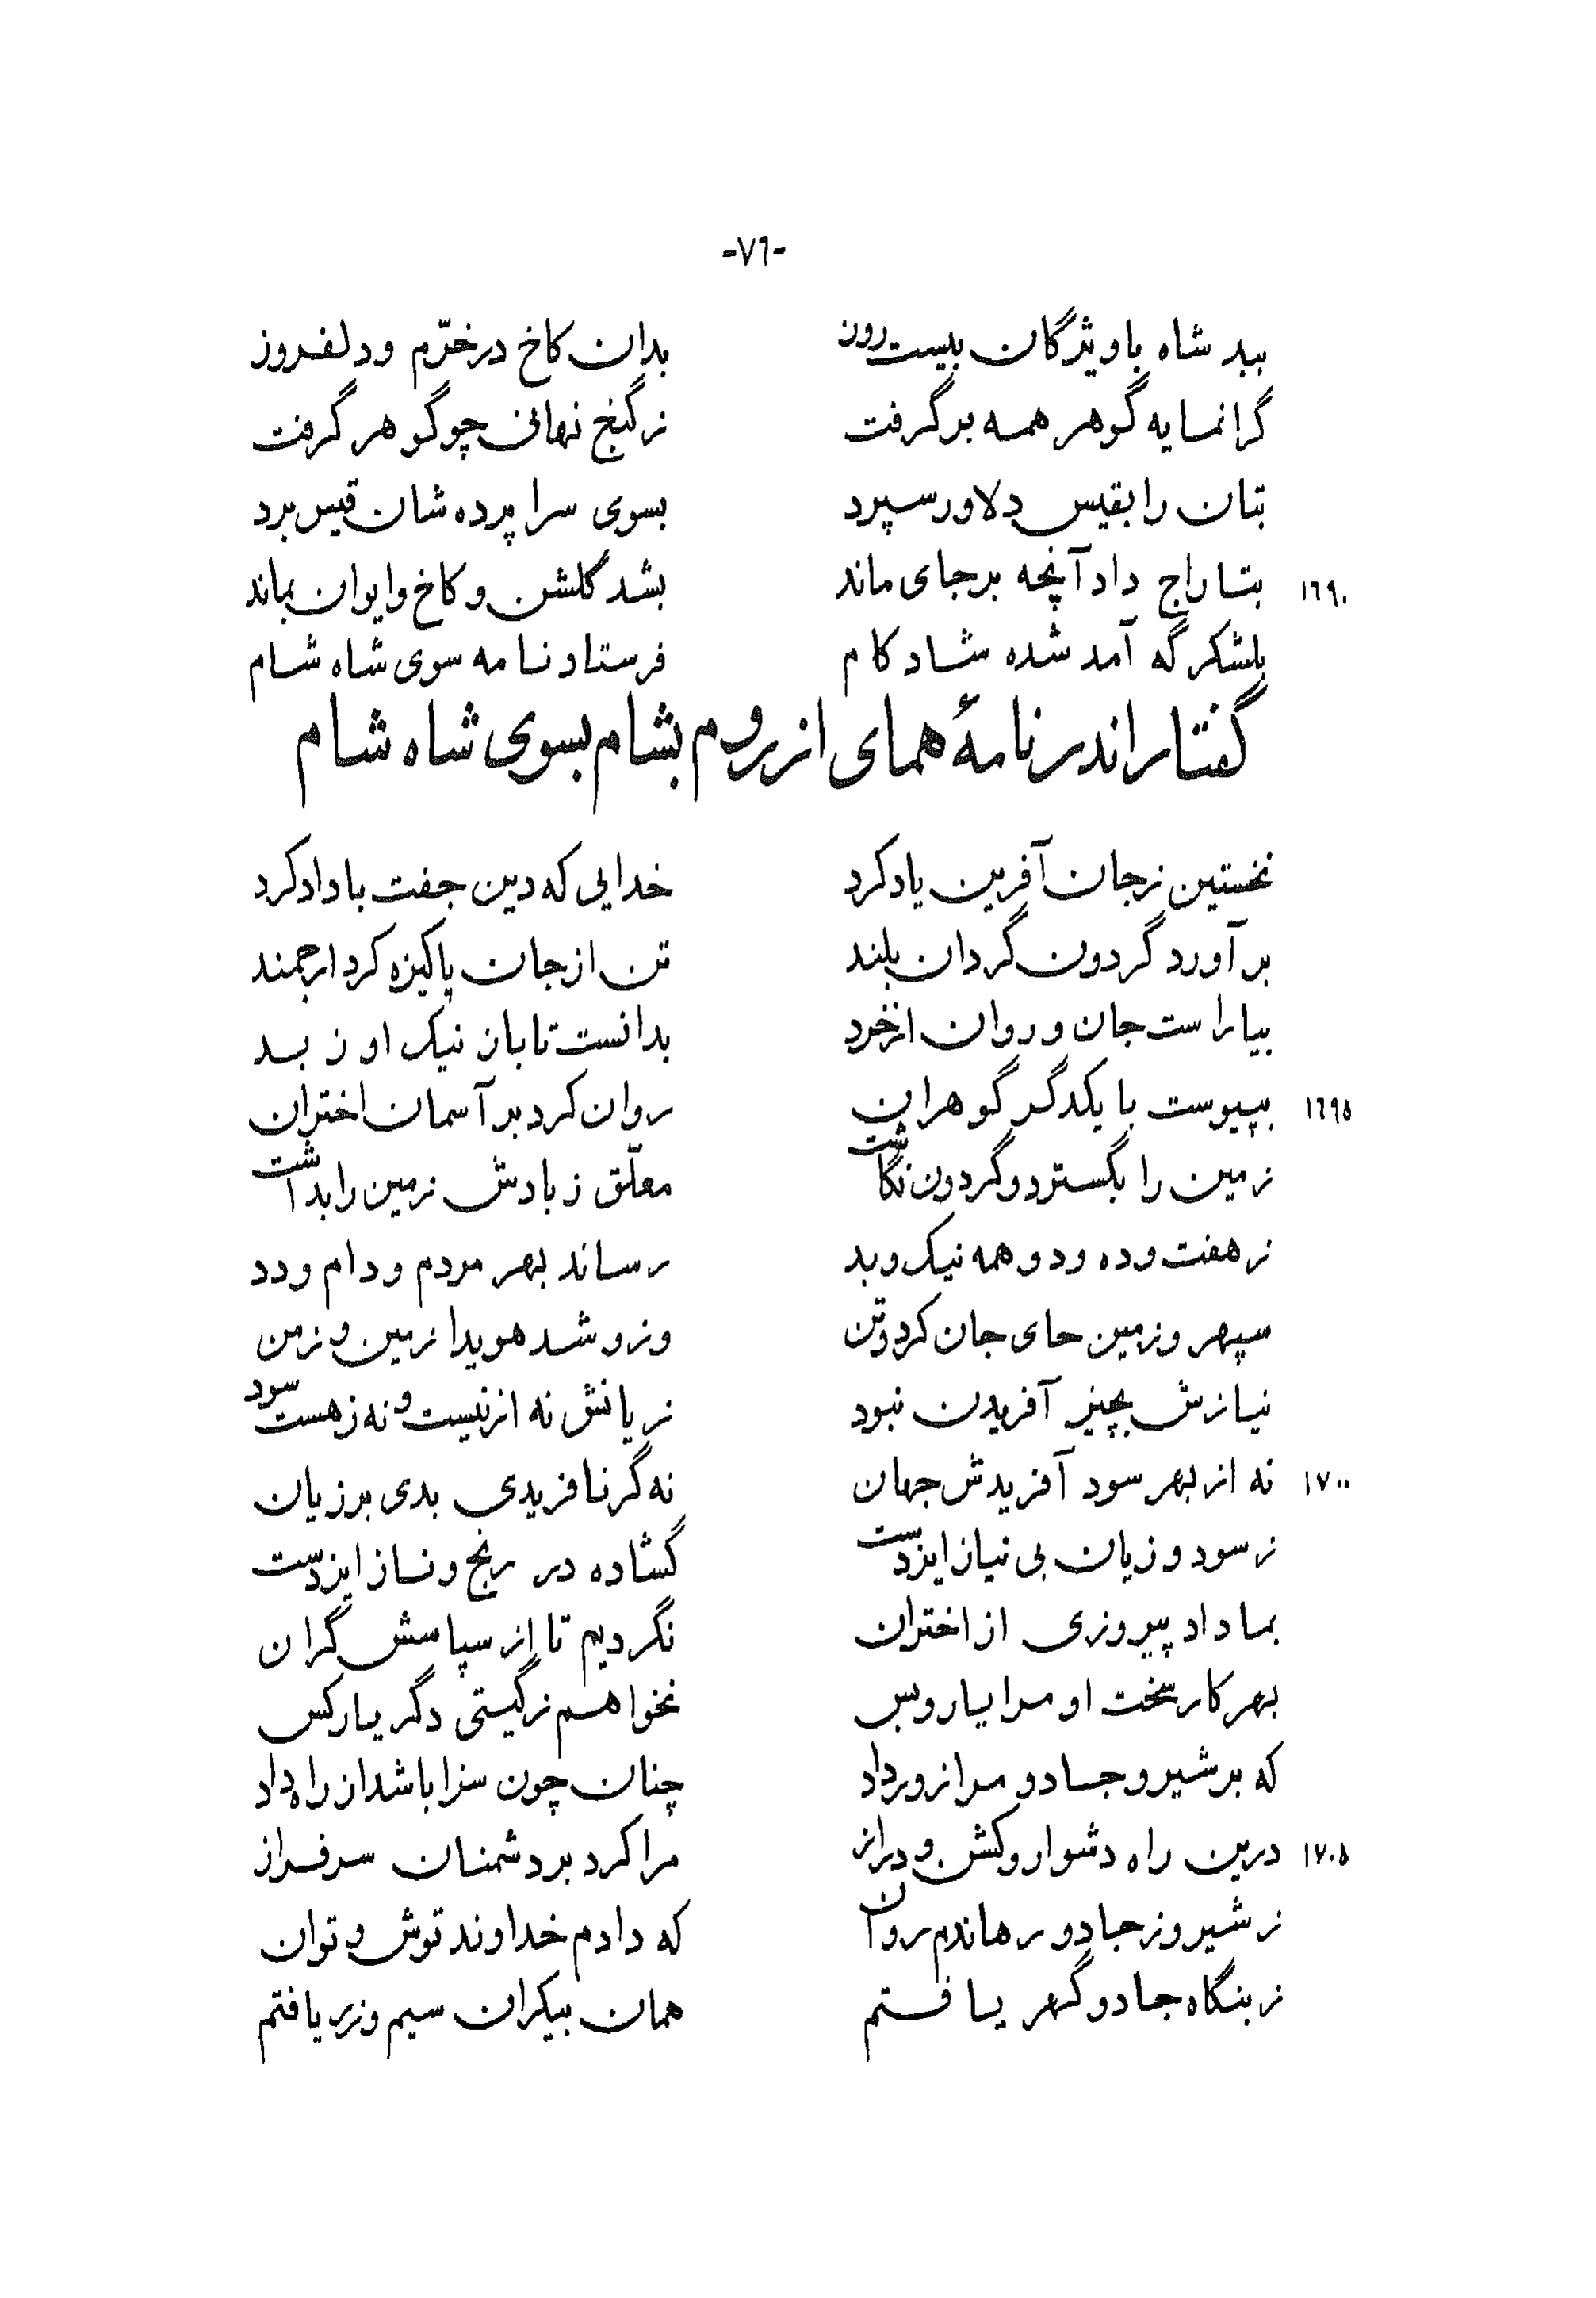 -٧٦-
ببد شاه با ویژگان بیست روز بدان کاخ در خرّم و دلفروز
گرانمایه گوهر همه برگرفت ز گنج نهانی چو گوهر گرفت
بتان را بقیس دلاور سپرد بسوی سرا پرده شان قیس برد
١٦٩٠ بتاراج داد آنچه برجای ماند بشد گلشن و کاخ و ایوان بماند
بلشکر گه آمد شده شادکام فرستاد نامه سوی شاه شام
گفتار اندر نامهٔ همای از روم بشام بسوی شاه شام
نخستین ز جان آفرین یاد کرد خدایی که دین جفت با داد کرد
بر آورد گردون گردان بلند تن از جان پاکیزه کرد ارجمند
بیاراست جان و روان از خرد بدانست تا بان نیک او ز بد
١٦٩٥ بپیوست با یکدگر گوهران روان کرد بر آسمان اختران
زمین را بگسترد و گردون نگاشت معلّق ز بادش زمین را بداشت
ز هفت و ده و دو همه نیک و بد رساند بهر مردم و دام و دد
سپهر و زمین جای جان کرد و تن وزو شد هویدا زمین و زمن
نیازش بچیز آفریدن نبود زیانش نه از نیست و نه ز هست سود
١٧٠٠ نه از بهر سود آفریدش جهان نه گر نافریدی بدی بر زیان
ز سود و زیان بی نیاز ایزدست گشاده در رنج و نساز ایزدست
بما داد پیروزی از اختران نگردیم تا از سپاسش گران
بهر کار سخت او مرا یار و بس نخواهم ز گیتی دگر یار کس
که بر شیر و جادو مرا زور داد چنان چون سزا باشد از راه داد
١٧٠٥ درین راه دشوار و کش و دراز مرا کرد بر دشمنان سرفراز
ز شیر و ز جادو رهاندم روان که دادم خداوند توش و توان
ز بنگاه جادو گهر یافتم همان بیکران سیم و زر یافتم